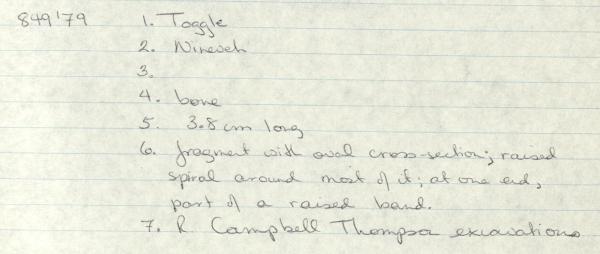 849'79 1. Toggle
2. Nineveh
3.
4. bone
5. 3.8cm long
6. fragment with oval cross-section; raised
spiral around most of it; at one end,
part of a raised band.
7. R Campbell Thompson excavations